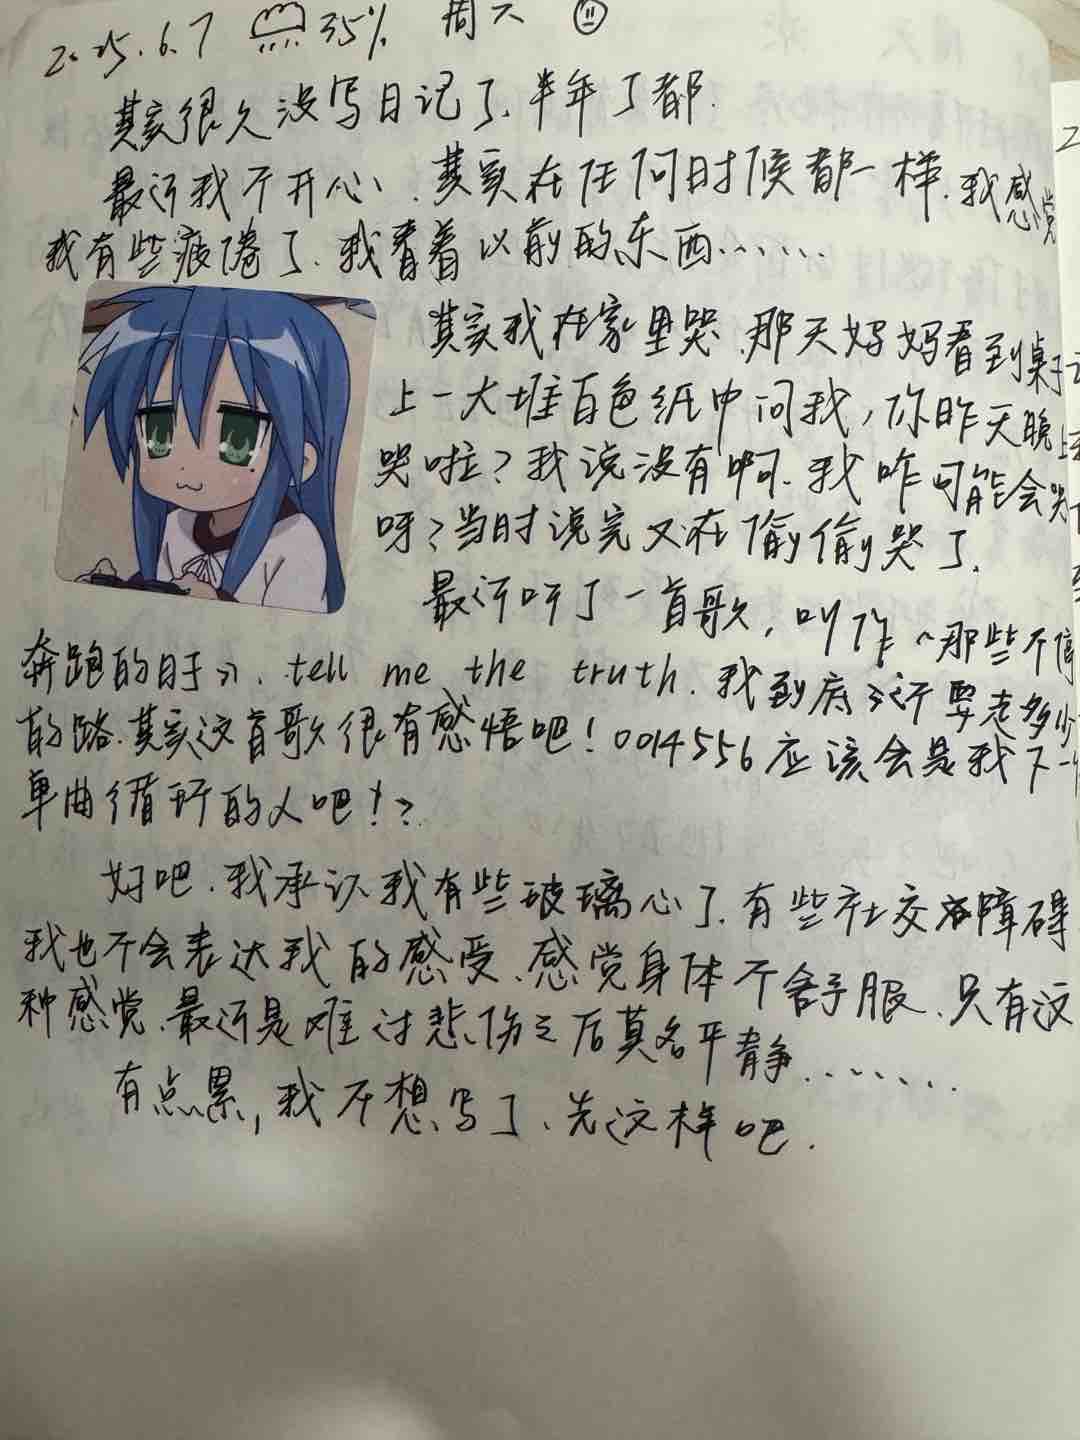 2025.6.7 35% 周六
其实很久没写日记了、半年了都.
最近我不开心、其实在任何时候都一样、我感觉
我有些疲倦了、我看着以前的东西……
其实我在家里哭、那天妈妈看到桌子
上一大堆白色纸巾问我,你昨天晚上
哭啦?我说没有啊、我咋可能会哭
呀?当时说完又在偷偷哭了、
最近听了一首歌,叫作~那些不停
奔跑的日子、tell me the truth、我到底还要走多少
的路、其实这首歌很有感悟吧!0014556应该会是我下一个
单曲循环的人吧!?
好吧、我承认我有些玻璃心了、有些社交障碍
我也不会表达我的感受、感觉身体不舒服、只有这
种感觉、最近是难过悲伤之后莫名平静……
有点累,我不想写了、先这样吧.